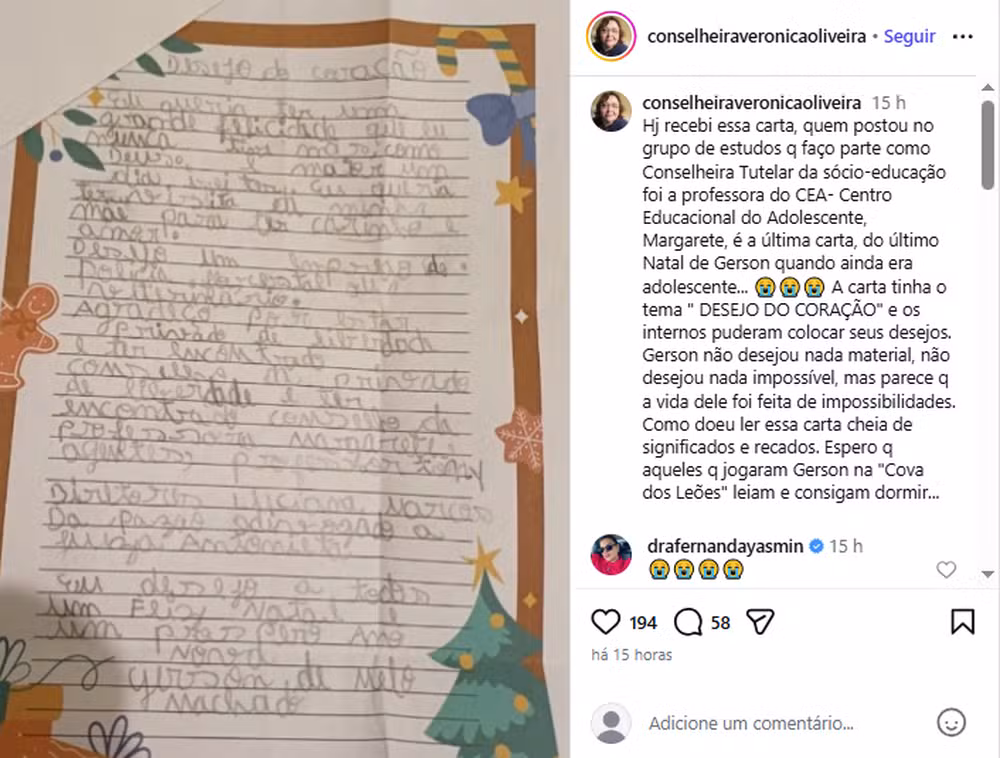 Desejo do coração
Eu queria ter um
grande felicidade que eu
nunca tive mas como
Deus e maior um
dia vou ter. Eu queria
ter visita da minha
mãe para ter carinho e
amor.
Desejo um emprego de
Polícia
Agradeço por estar
privado de liberdade
e ter encontrado
privado
de liberdade e ter
encontrado conselho da
professora Margarete
agentes, professor tony
Diretores Marcos
Da a
juiza Antonieta
Eu desejo a todos
um Feliz Natal e
um prospero Ano
Novo!
Gerson de Melo
Machado
conselheiraveronicaoliveira • Seguir
conselheiraveronicaoliveira 15 h
Hj recebi essa carta, quem postou no
grupo de estudos q faço parte como
Conselheira Tutelar da sócio-educação
foi a professora do CEA- Centro
Educacional do Adolescente,
Margarete, é a última carta, do último
Natal de Gerson quando ainda era
adolescente... 😭😭😭 A carta tinha o
tema " DESEJO DO CORAÇÃO" e os
internos puderam colocar seus desejos.
Gerson não desejou nada material, não
desejou nada impossível, mas parece q
a vida dele foi feita de impossibilidades.
Como doeu ler essa carta cheia de
significados e recados. Espero q
aqueles q jogaram Gerson na "Cova
dos Leões" leiam e consigam dormir...
drafernandayasmin 15 h
😭😭😭😭
194 58
há 15 horas
Adicione um comentário...